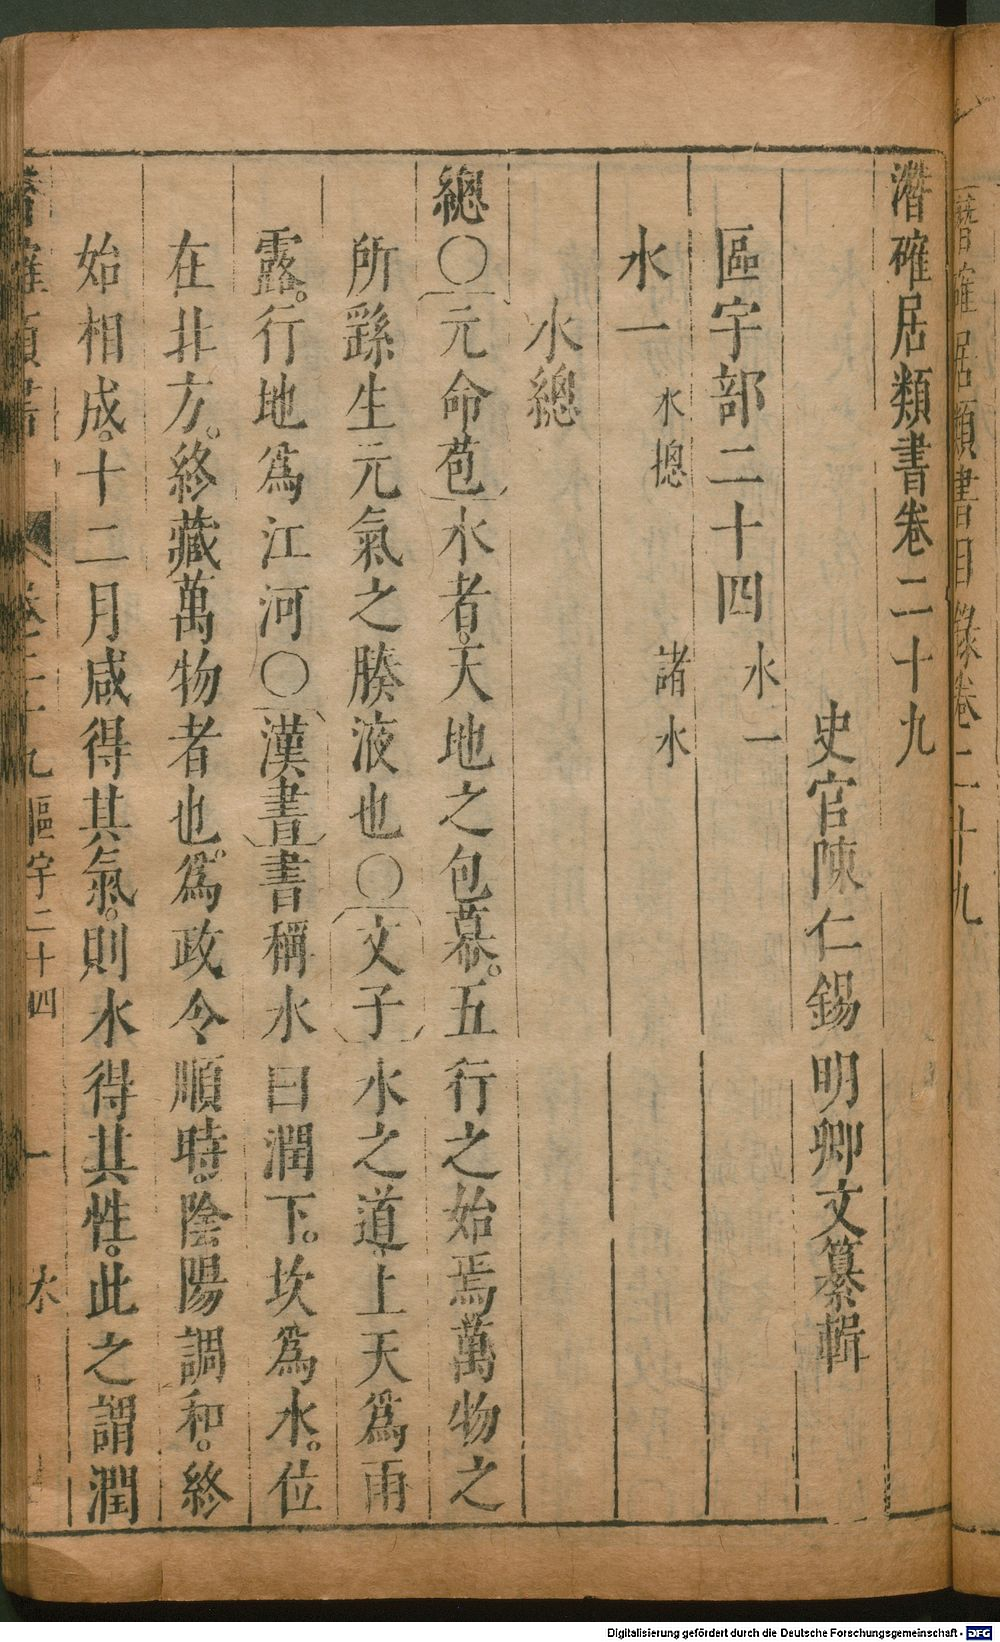 潛確居類書卷二十九
史官陳仁錫明卿父纂輯
區宇部二十四 水一
水一 水摠 諸水
水總
總〇元命苞水者。天地之包幕。五行之始焉萬物之
所繇生元氣之腠液也〇文子水之道上天爲雨
露。行地爲江河〇漢書書稱水曰潤下。坎爲水。位
在北方。終藏萬物者也。爲政令順時。陰陽調和。終
始相成。十二月咸得其氣。則水得其性。此之謂潤
潛確類書 卷二十九 區宇二十四 一 水
潛確居類書目錄卷二十九
Digitalisierung gefördert durch die Deutsche Forschungsgemeinschaft - DFG